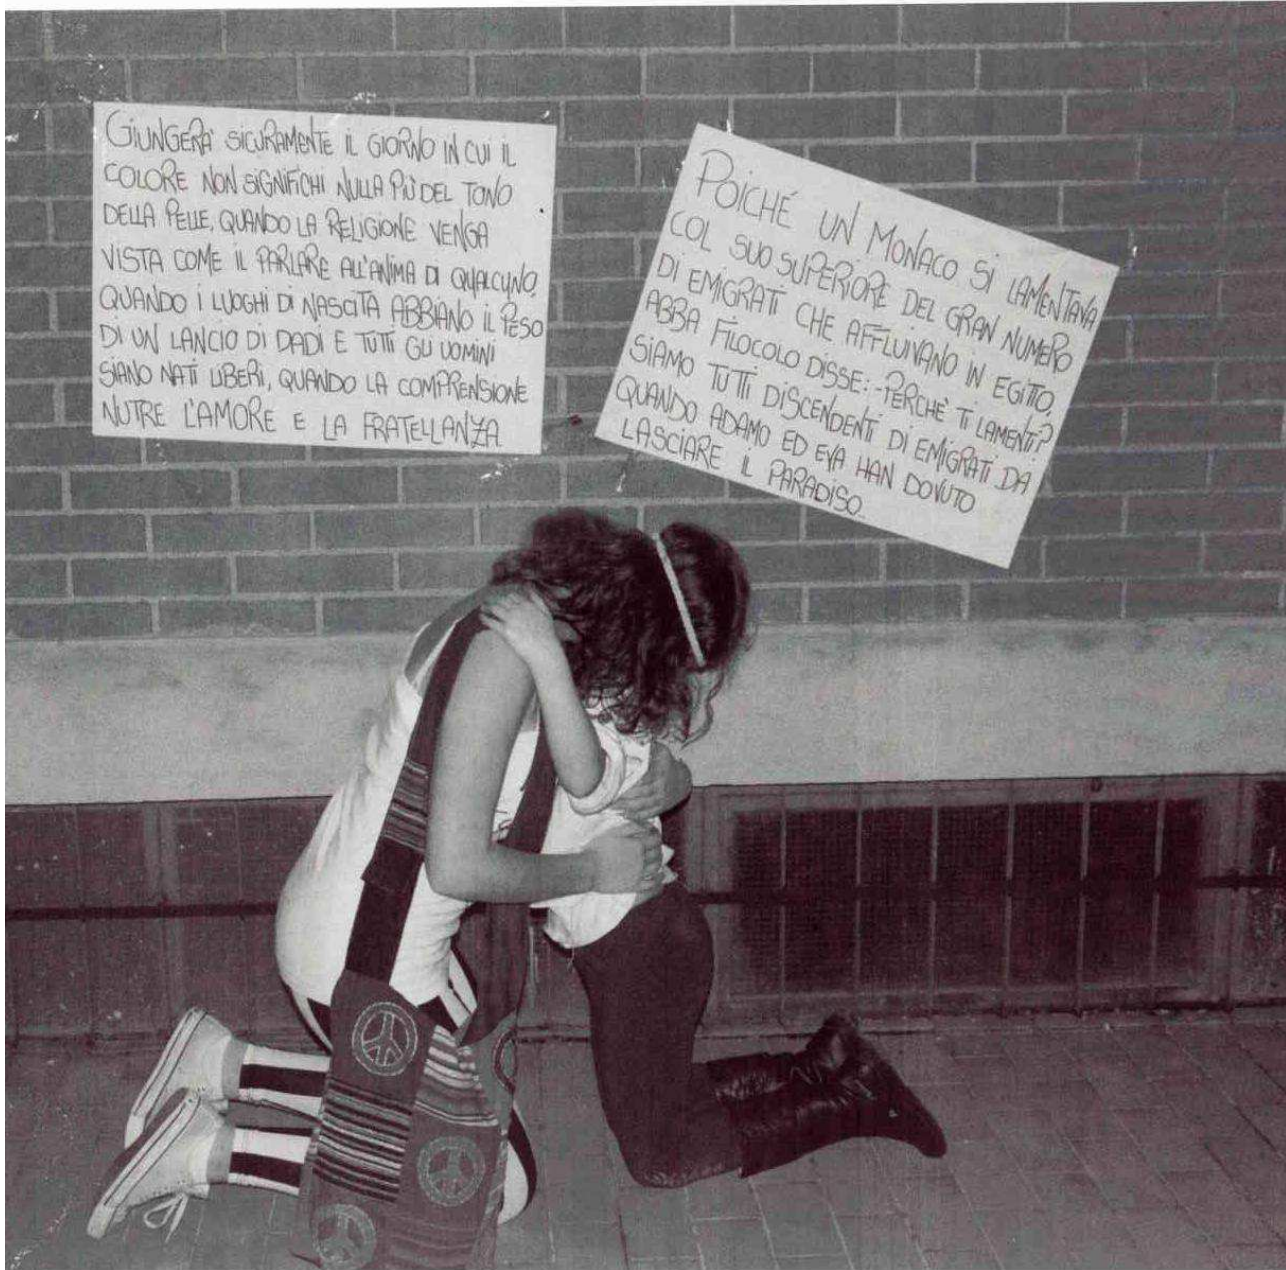 GIUNGERA' SICURAMENTE IL GIORNO IN CUI IL
COLORE NON SIGNIFICHI NULLA PIÙ DEL TONO
DELLA PELLE, QUANDO LA RELIGIONE VENGA
VISTA COME IL PARLARE ALL'ANIMA DI QUALCUNO,
QUANDO I LUOGHI DI NASCITA ABBIANO IL PESO
DI UN LANCIO DI DADI E TUTTI GLI UOMINI
SIANO NATI LIBERI, QUANDO LA COMPRENSIONE
NUTRE L'AMORE E LA FRATELLANZA
POICHÉ UN MONACO SI LAMENTAVA
COL SUO SUPERIORE DEL GRAN NUMERO
DI EMIGRATI CHE AFFLUIVANO IN EGITTO,
ABBA FILOCOLO DISSE: -PERCHÈ TI LAMENTI?
SIAMO TUTTI DISCENDENTI DI EMIGRATI DA
QUANDO ADAMO ED EVA HAN DOVUTO
LASCIARE IL PARADISO...